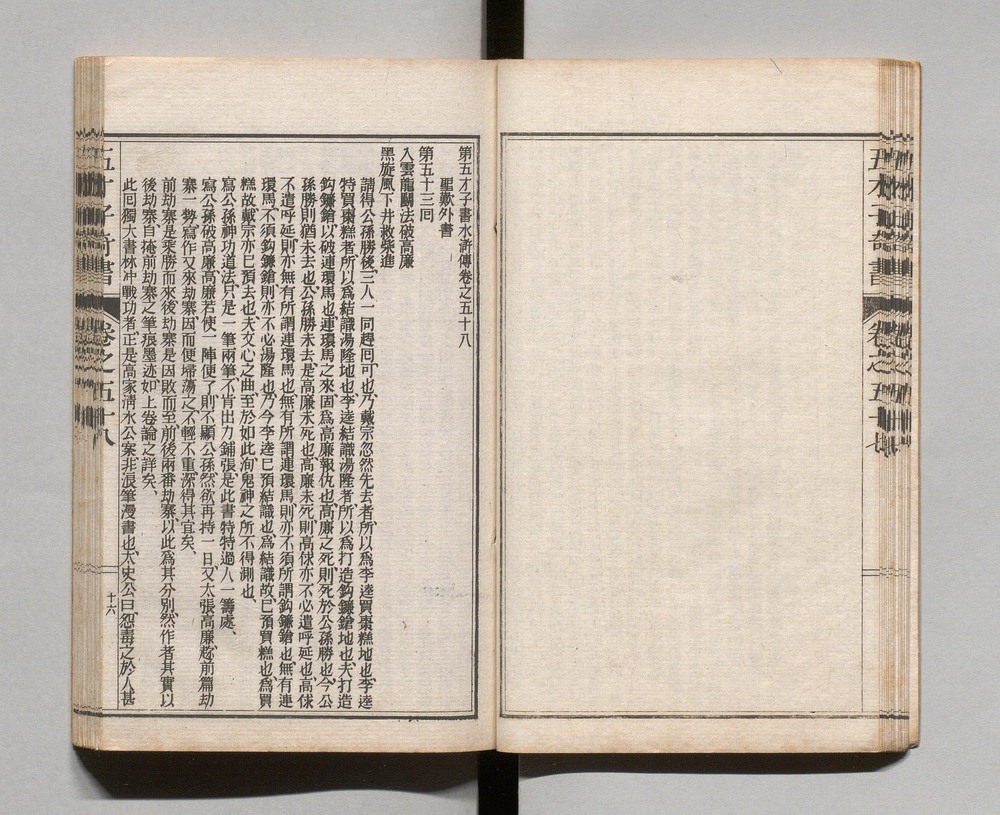 五才子奇書
卷之五十七
第五才子書水滸傳卷之五十八
聖歎外書
第五十三回
入雲龍鬬法破高廉
黑旋風下井救柴進
請得公孫勝後、三人一同趕回可也、乃戴宗忽然先去者、所以爲李逵買棗糕地也、李逵
特買棗糕者、所以爲結識湯隆地也、李逵結識湯隆者、所以爲打造鈎鐮鎗地也、夫打造
鈎鐮鎗、以破連環馬也、連環馬之來、固爲高廉報仇也、高廉之死、則死於公孫勝也、今公
孫勝則猶未去也、公孫勝未去、是高廉未死也、高廉未死、則高俅亦不必遣呼延也、高俅
不遣呼延、則亦無有所謂連環馬也、無有所謂連環馬、則亦不須所謂鈎鐮鎗也、無有連
環馬、不須鈎鐮鎗、則亦不必湯隆也、乃今李逵已預結識也、爲結識故、已預買糕也、爲買
糕故、戴宗亦已預去也、夫文心之曲、至於如此、洵鬼神之所不得測也、
寫公孫神功道法、只是一筆兩筆、不肯出力鋪張、是此書特特過人一籌處、
寫公孫破高廉、若使一陣便了、則不顯公孫、然欲再持一日、又太張高廉、趂前篇劫
寨一勢、寫作又來劫寨、因而便掃蕩之、不輕不重、深得其宜矣、
前劫寨是乘勝而來、後劫寨是因敗而至、前後兩番劫寨、以此爲其分別、然作者其實以
後劫寨自掩前劫寨之筆痕墨迹、如上卷論之詳矣、
此回獨大書林冲戰功者、正是高家清水公案、非浪筆漫書也、太史公曰、怨毒之於人甚
五才子奇書
卷之五十八
十六